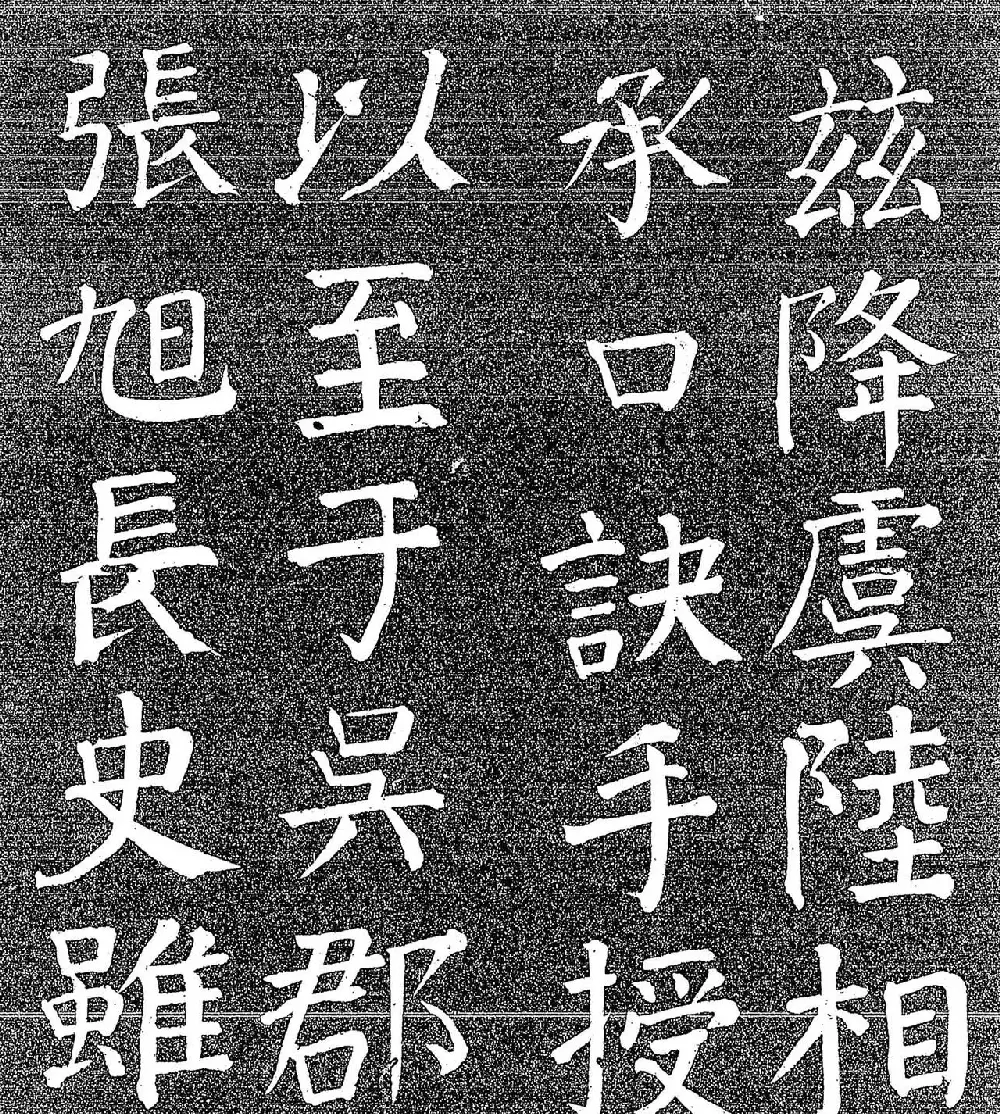 兹降虞陸相
承口訣手授
以至于吳郡
張旭長史雖